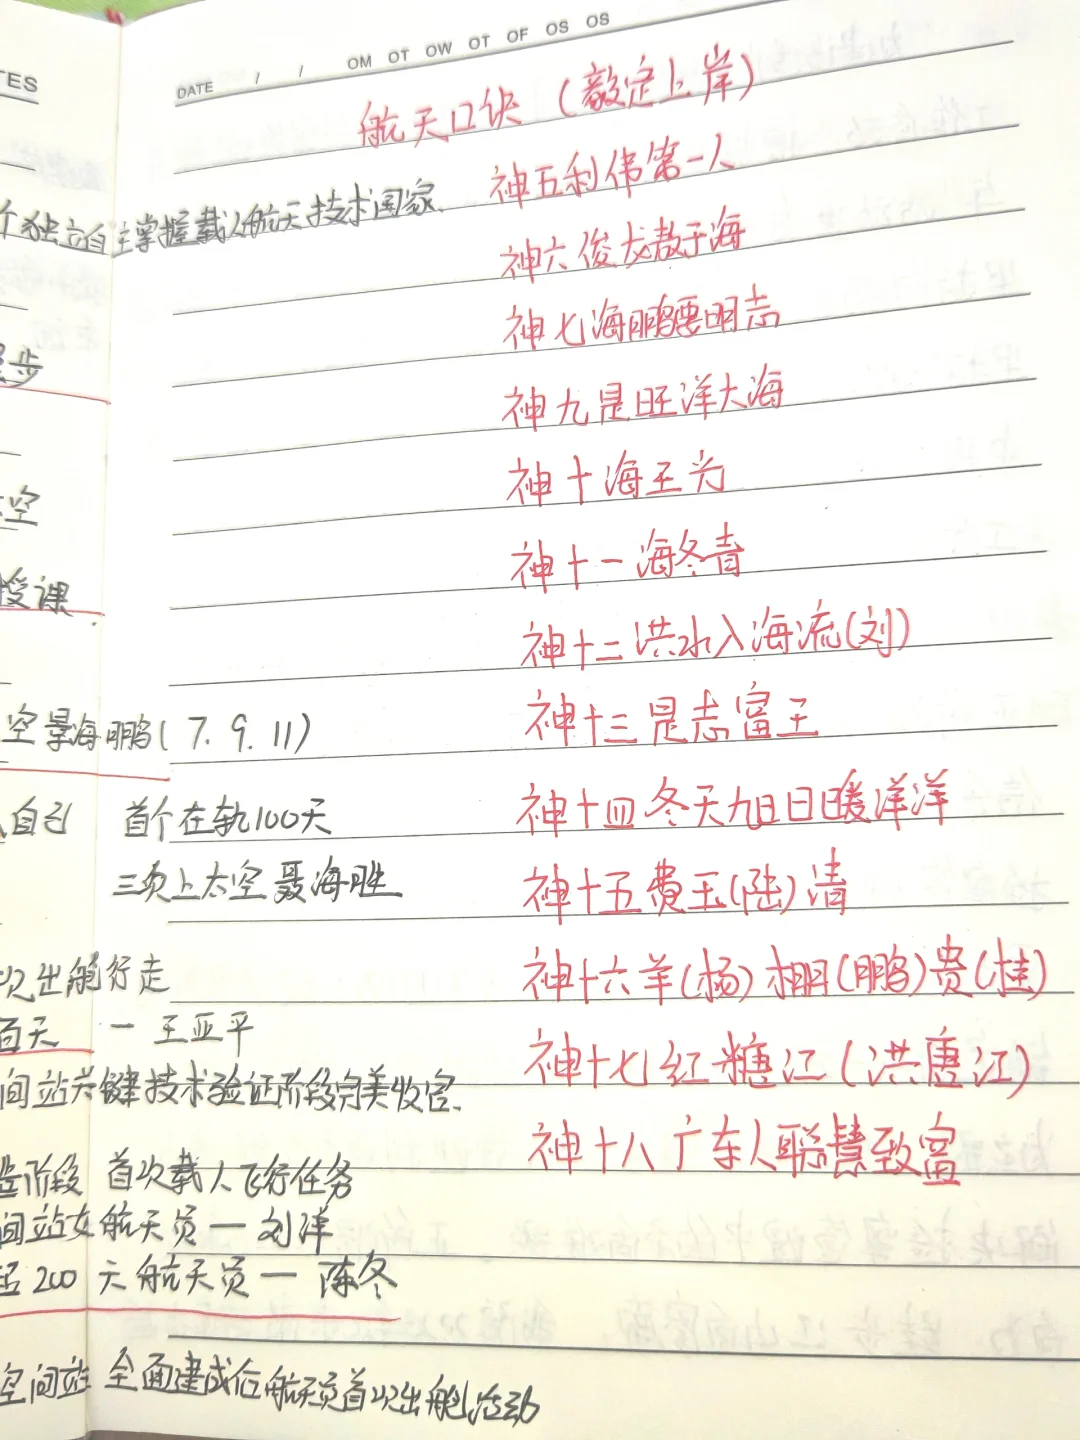 TES
DATE / / OM OT OW OT OF OS OS
航天口诀（毅定上岸）
神五利伟第一人
个独立自主掌握载人航天技术国家.
神六俊龙敖于海
神七海鹏要明志
步
神九是旺洋大海
神十海王为
空
神十一海冬青
授课.
神十二洪水入海流(刘)
神十三是志富王
空景海鹏(7.9.11)
神十四冬天旭日暖洋洋
自己 首个在轨100天
三次上太空聂海胜
神十五费玉(陆)清
神十六羊(杨)棚(鹏)贵(桂)
次出舱行走
百天 一王亚平
神十七红糖江(洪唐江)
间站关键技术验证阶段完美收官.
神十八广东人聪慧致富
阶段 首次载人飞行任务
间站女航天员一刘洋
200天航天员一陈冬
空间站全面建成后航天员首次出舱活动